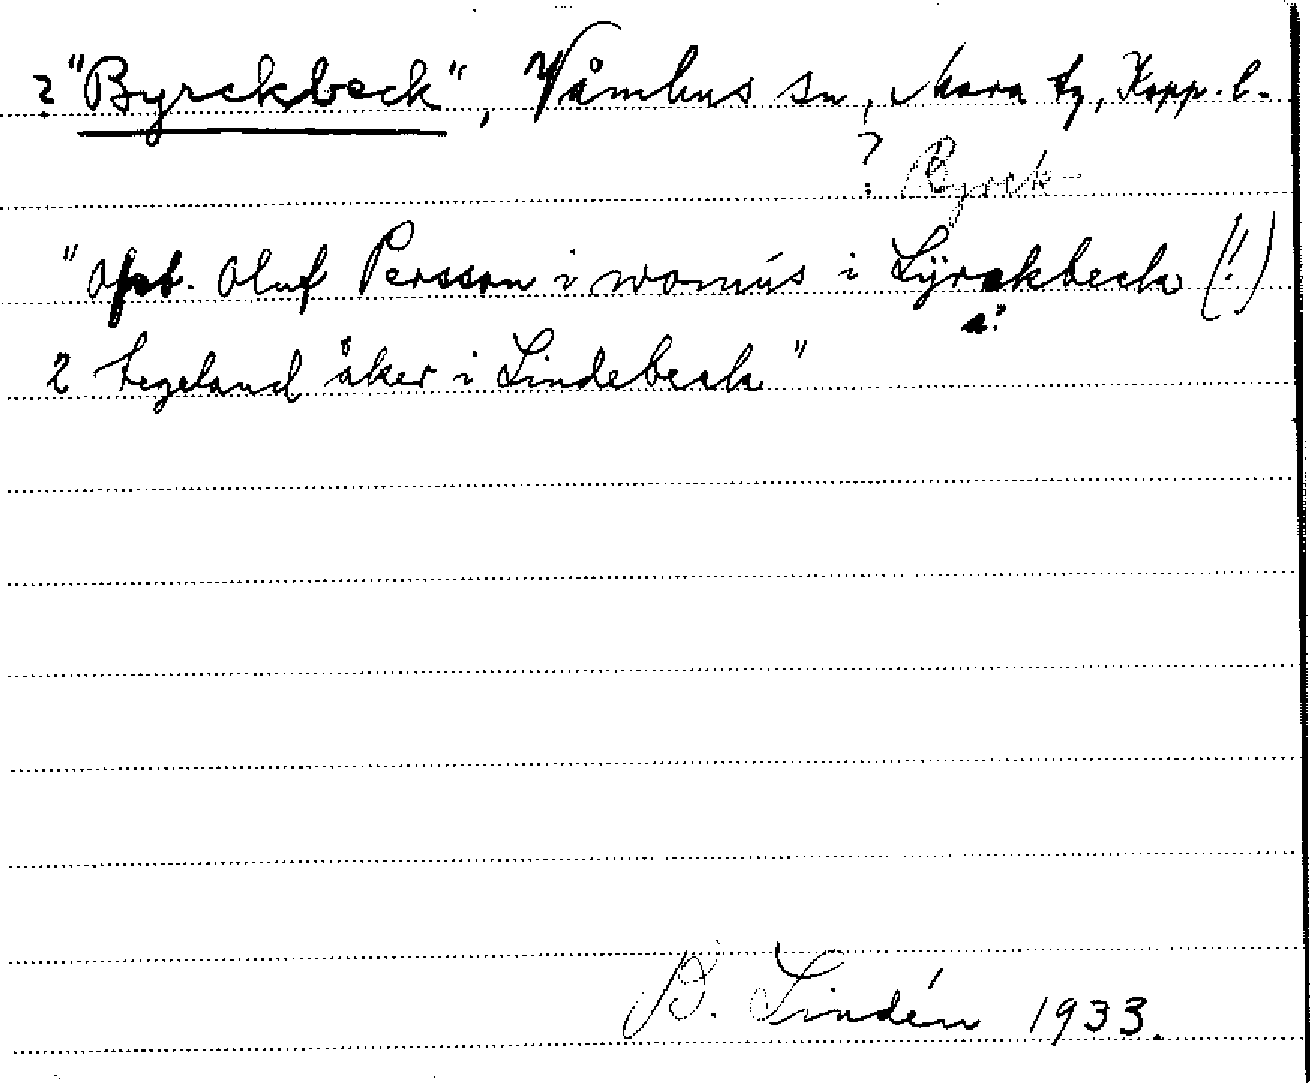 ? "Byrckbeck", Våmhus sn, Mora tg, Kopp. l.
? Byrck-
"opt. Oluf Persson i womús i Lÿrckbeck (!)
a?
2 tegeland åker i Lindebeck"
B. Lindén 1933.